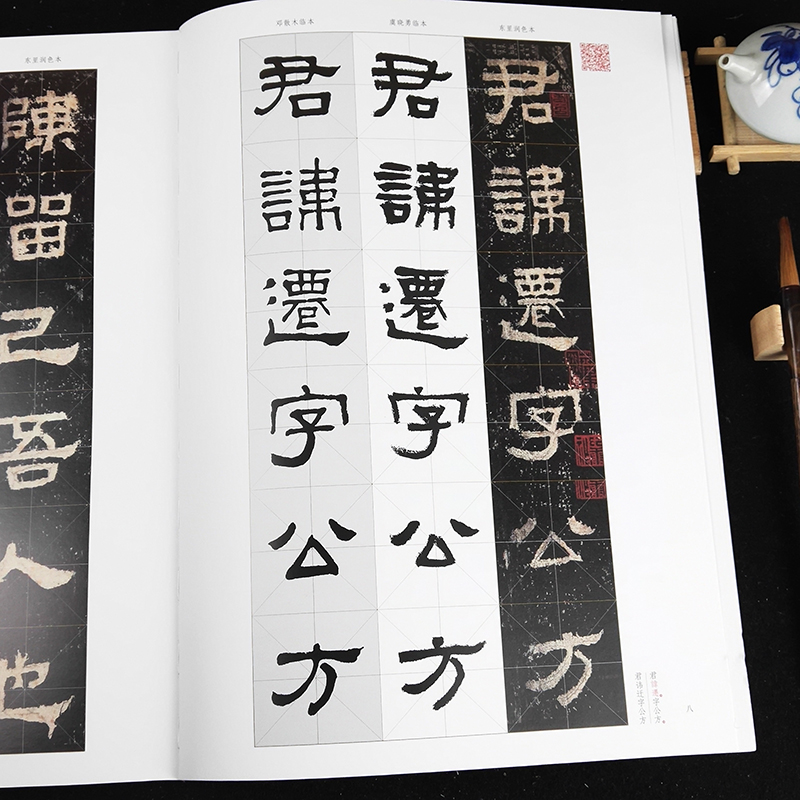 东里润色本
陳留己吾人也
邓散木临本
虞晓勇临本
东里润色本
君諱遷字公方
君諱遷字公方
君諱遷字公方
君諱遷。字公方。
君讳迁字公方
八